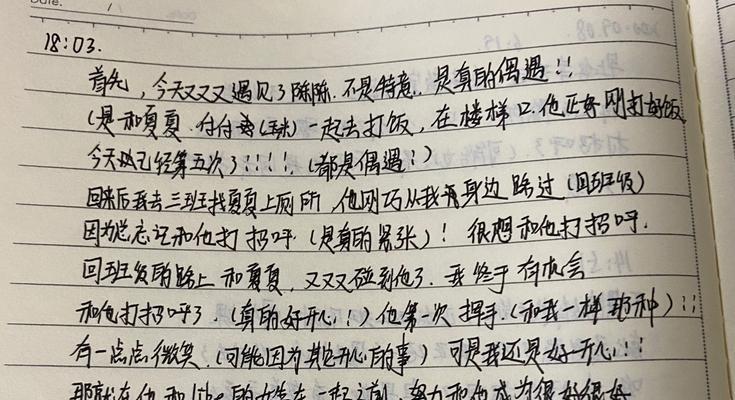 Date. /
18:03.
首先，今天又又又遇见了陈陈.不是特意.是真的偶遇!!
(是和夏夏.付付 一起去打饭，在楼梯口.他正好刚打好饭
今天已经第五次了!!!!.(都是偶遇!)
回来后我去三班找夏夏上厕所，他刚巧从我身边路过(回班级)
因为总忘记和他打招呼(是真的紧张)!很想和他打招呼.
回班级的路上和夏夏，又又又碰到他了.我终于有机会
和他打招呼了.(真的好开心!)他第一次挥手.(和我一样那种)!!
有一点点微笑.(可能因为其他开心的事)可是我还是好开心!!!
那就在他和like的女生在一起之前，努力和他成为很好很好